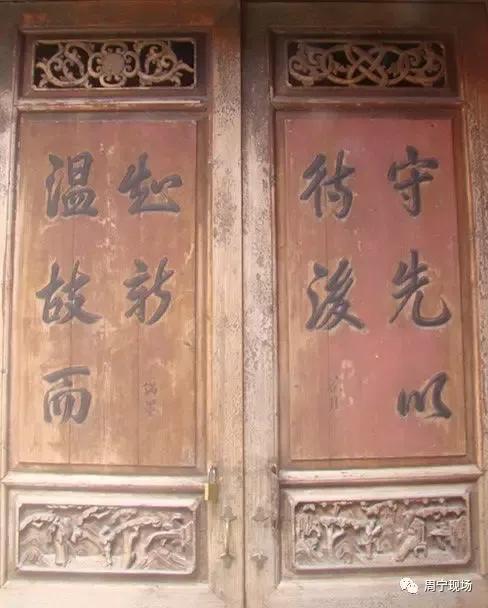 守先以
待後
温故而
知新
周宁现场